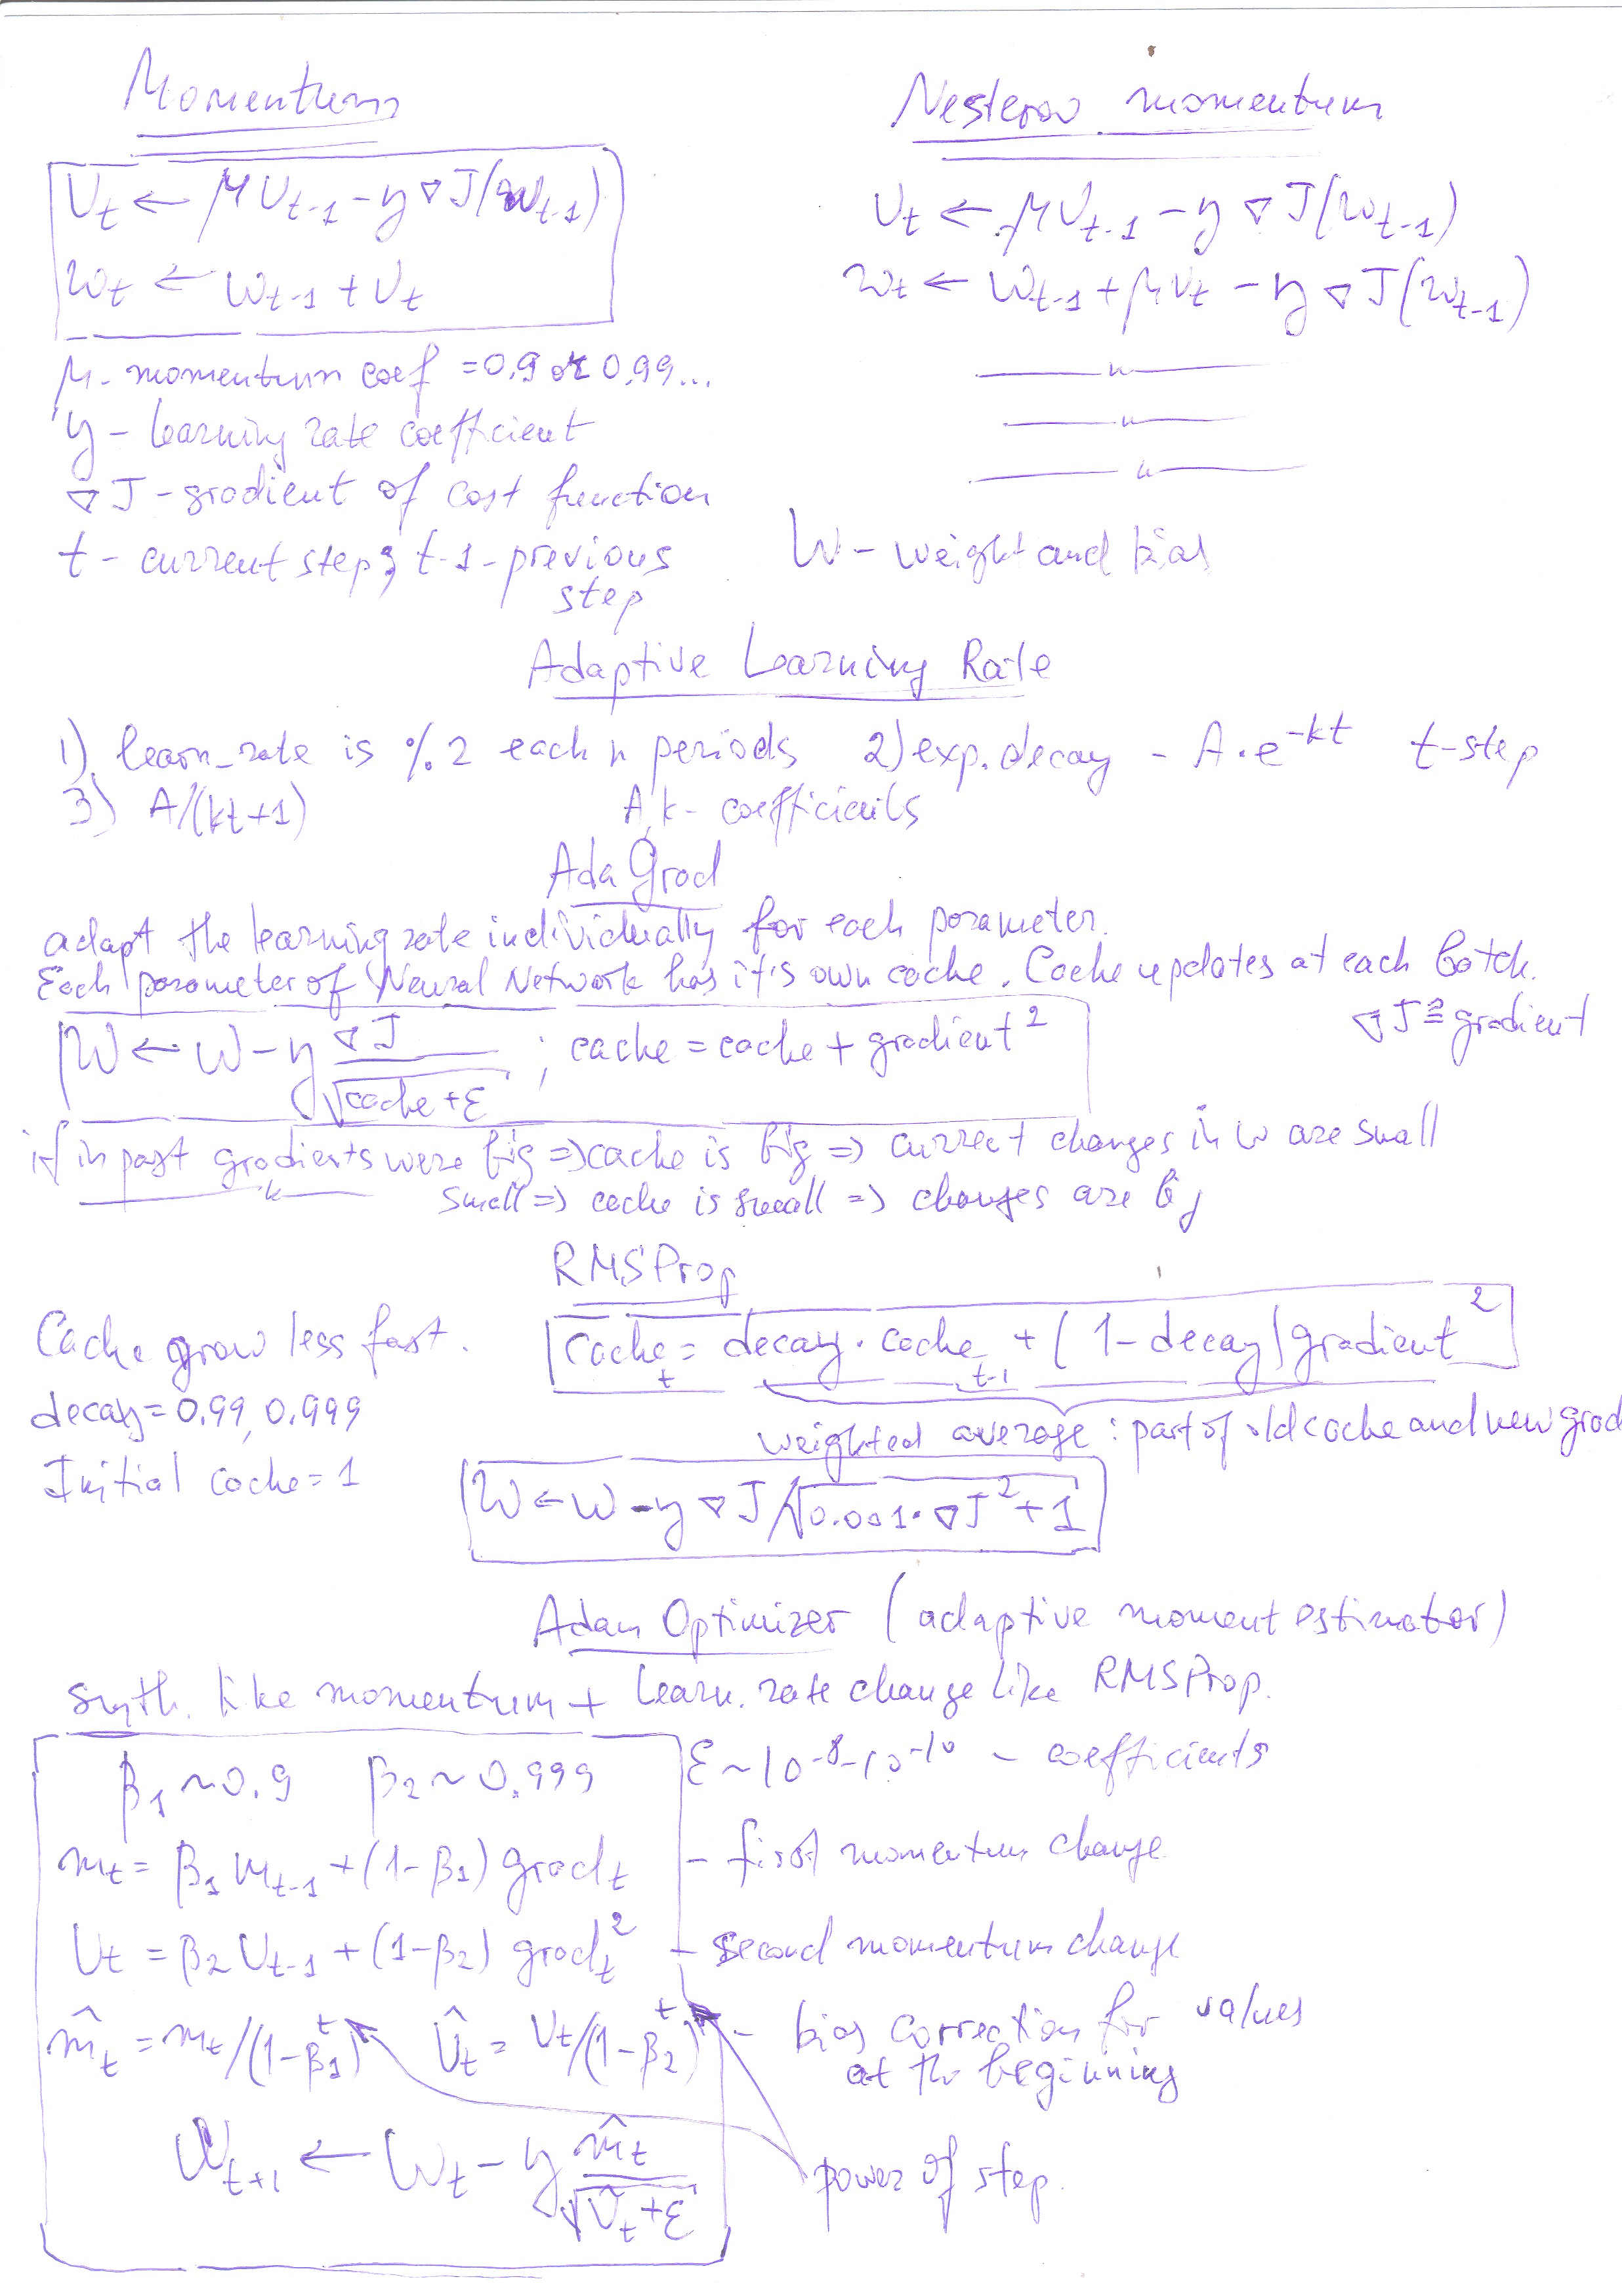 Momentum
Nesterov momentum
Vt ← μVt-1 - y∇J(wt-1)
wt ← wt-1 + Vt
Vt ← μVt-1 - y∇J(wt-1)
wt ← wt-1 + μVt - y∇J(wt-1)
μ - momentum coef = 0.9 or 0.99...
— " —
y - learning rate coefficient
— " —
∇J - gradient of cost function
— " —
t - current step; t-1 - previous
step
W - weight and bias
Adaptive Learning Rate
1) learn_rate is %2 each n periods 2) exp. decay - A·e^-kt t-step
3) A/(kt+1) A,k - coefficients
AdaGrad
adapt the learning rate individually for each parameter.
Each parameter of Neural Network has it's own cache. Cache updates at each batch.
W ← W - y ∇J/√cache+ε ; cache = cache + gradient²
∇J ≡ gradient
if in past gradients were big => cache is big => current changes in w are small
— " — small => cache is small => changes are big
RMSProp
Cache grow less fast.
cache t = decay · cache t-1 + (1-decay)gradient²
decay = 0.99, 0.999
weighted average : part of old cache and new grad
Initial cache = 1
W ← W - y∇J/√0.001·∇J²+1
Adam Optimizer (adaptive moment estimator)
smth. like momentum + learn. rate change like RMSProp.
β1 ~ 0.9 β2 ~ 0.999 ε ~ 10^-8 - 10^-10 - coefficients
mt = β1 mt-1 + (1-β1) gradt - first momentum change
Vt = β2 Vt-1 + (1-β2) gradt² - second momentum change
m̂t = mt/(1-β1^t) V̂t = Vt/(1-β2^t) - bias correction for values
at the beginning
Wt+1 ← Wt - y m̂t/√V̂t+ε
power of step.